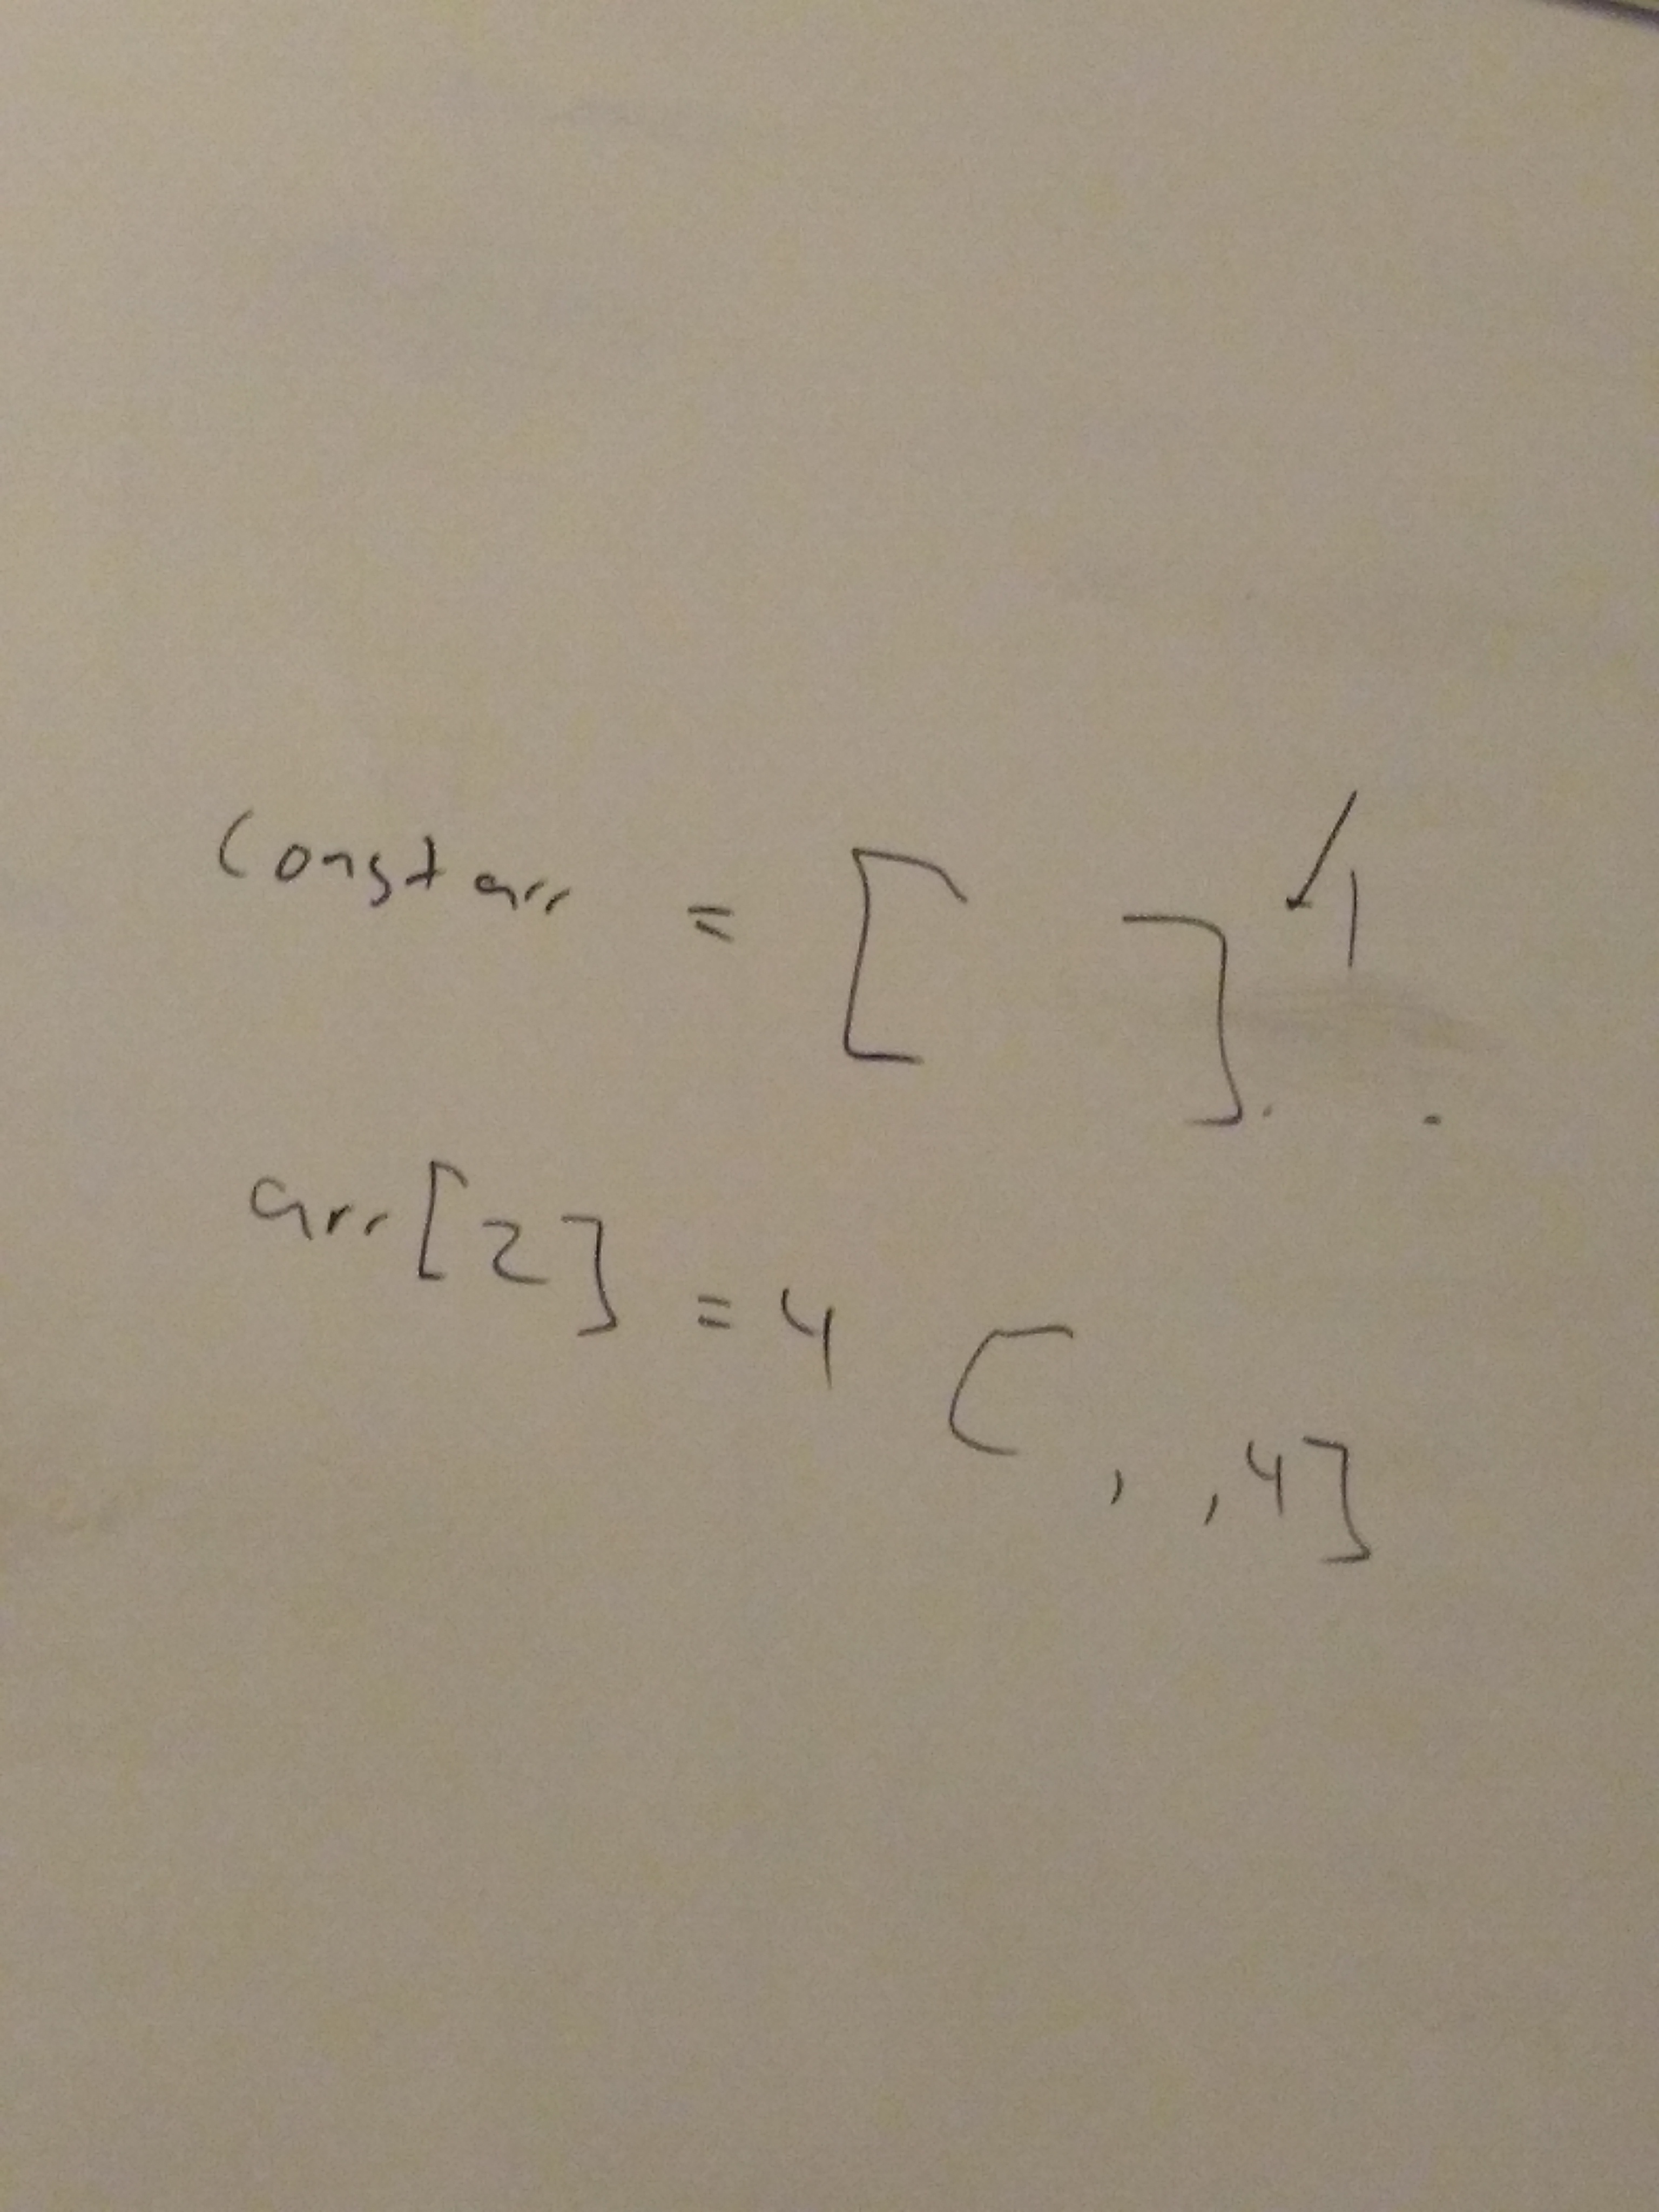 const arr = [ ]
arr[2] = 4 [ , , 4]